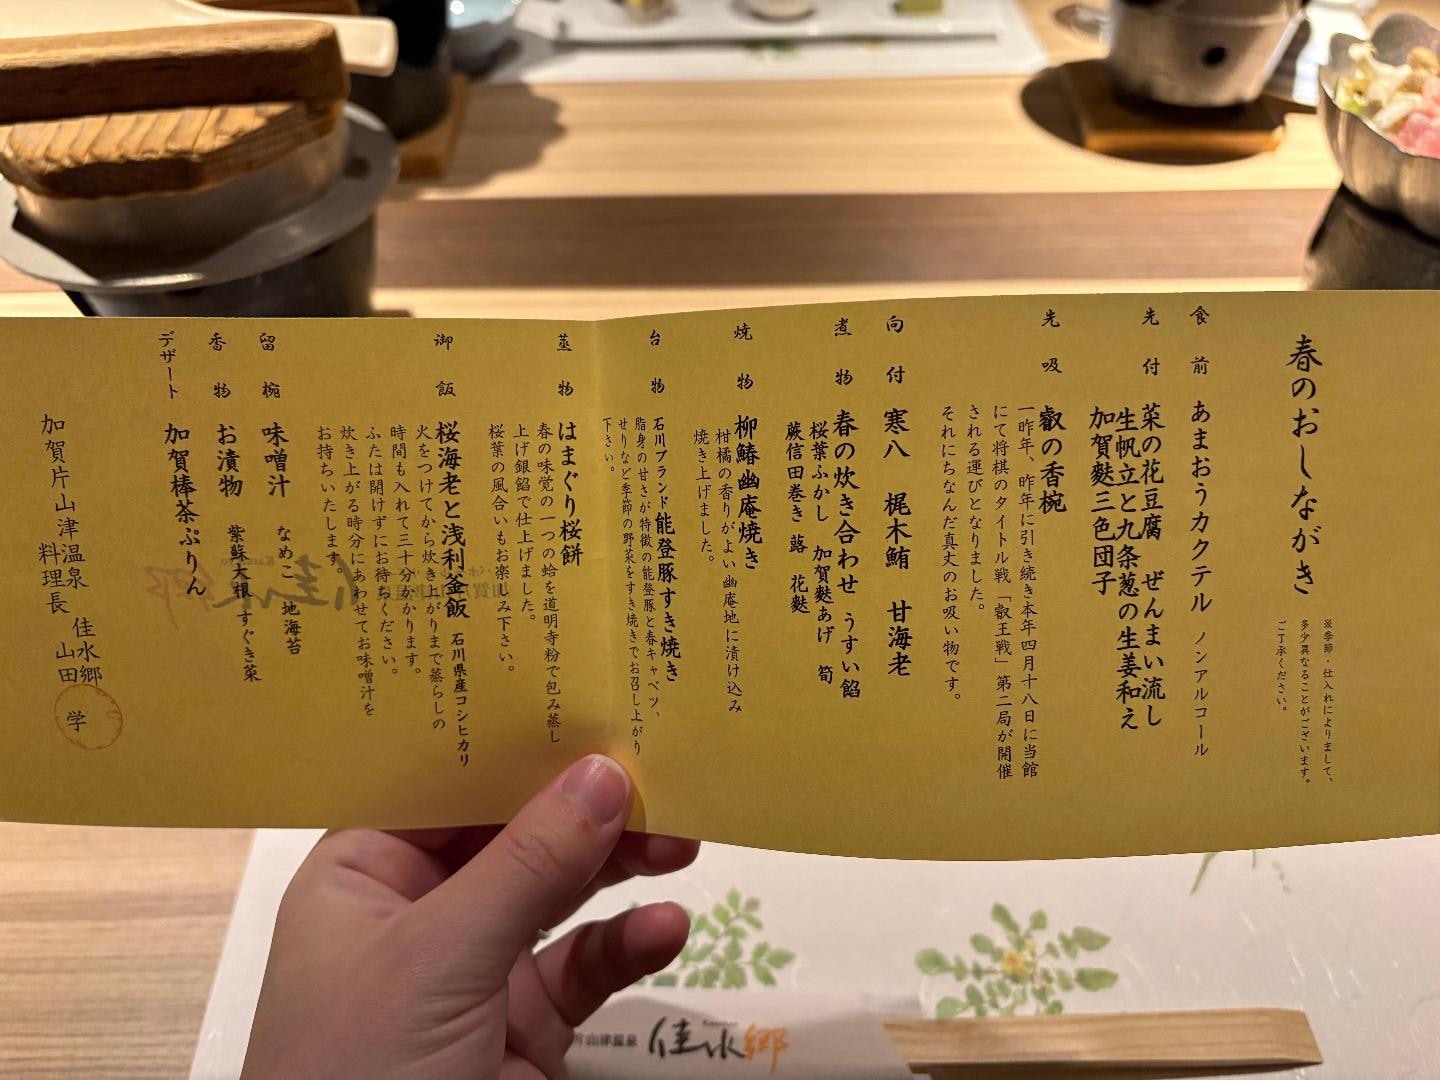 春のおしながき
※季節・仕入れによりまして、
多少異なることがございます。
ご了承ください。
食前 あまおうカクテル ノンアルコール
先付 菜の花豆腐 ぜんまい流し
生帆立と九条葱の生姜和え
加賀麩三色団子
先吸 叡の香椀
一昨年、昨年に引き続き本年四月十八日に当館
にて将棋のタイトル戦「叡王戦」第二局が開催
される運びとなりました。
それにちなんだ真丈のお吸い物です。
向付 寒八 梶木鮪 甘海老
煮物 春の炊き合わせ うすい餡
桜葉ふかし 加賀麩あげ 筍
蕨信田巻き 蕗 花麩
焼物 柳鰆幽庵焼き
柑橘の香りがよい幽庵地に漬け込み
焼き上げました。
台物 石川ブランド能登豚すき焼き
脂身の甘さが特徴の能登豚と春キャベツ、
せりなど季節の野菜をすき焼きでお召し上がり
下さい。
蒸物 はまぐり桜餅
春の味覚の一つの蛤を道明寺粉で包み蒸し
上げ銀餡で仕上げました。
桜葉の風合いもお楽しみ下さい。
御飯 桜海老と浅利釜飯 石川県産コシヒカリ
火をつけてから炊き上がりまで蒸らしの
時間も入れて三十分かかります。
ふたは開けずにお待ちください。
炊き上がる時分にあわせてお味噌汁を
お持ちいたします。
留椀 味噌汁 なめこ 地海苔
香物 お漬物 紫蘇大根 すぐき菜
デザート 加賀棒茶ぷりん
加賀片山津温泉 佳水郷
料理長 山田 学
片山津温泉 佳水郷